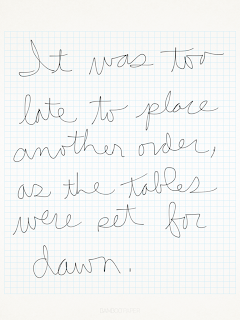 It was too
late to place
another order,
as the tables
were set for
dawn.